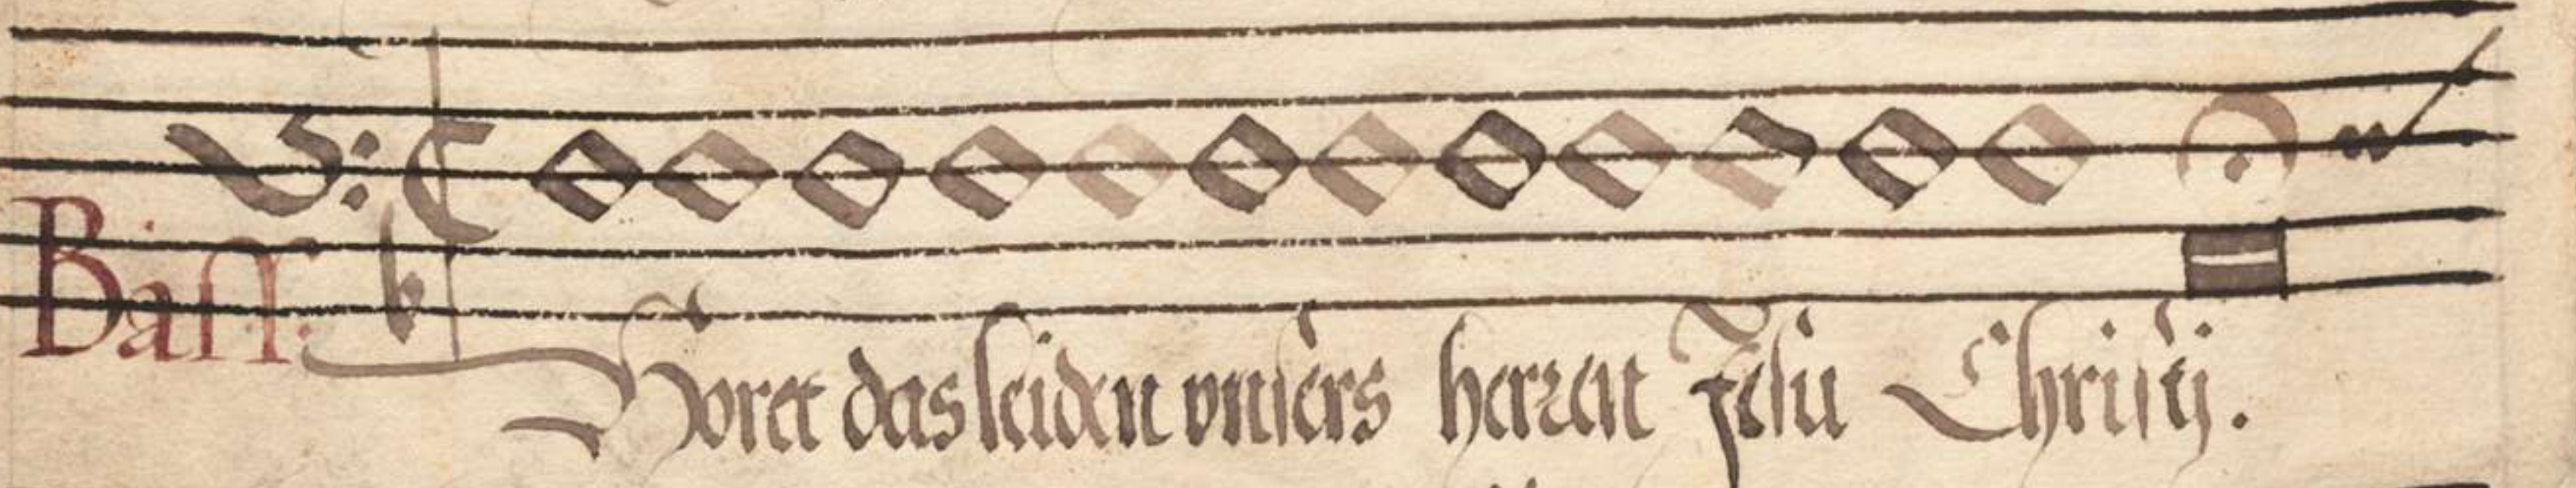 Bass.
Höret das leiden vnsers herren Jesu Christij.